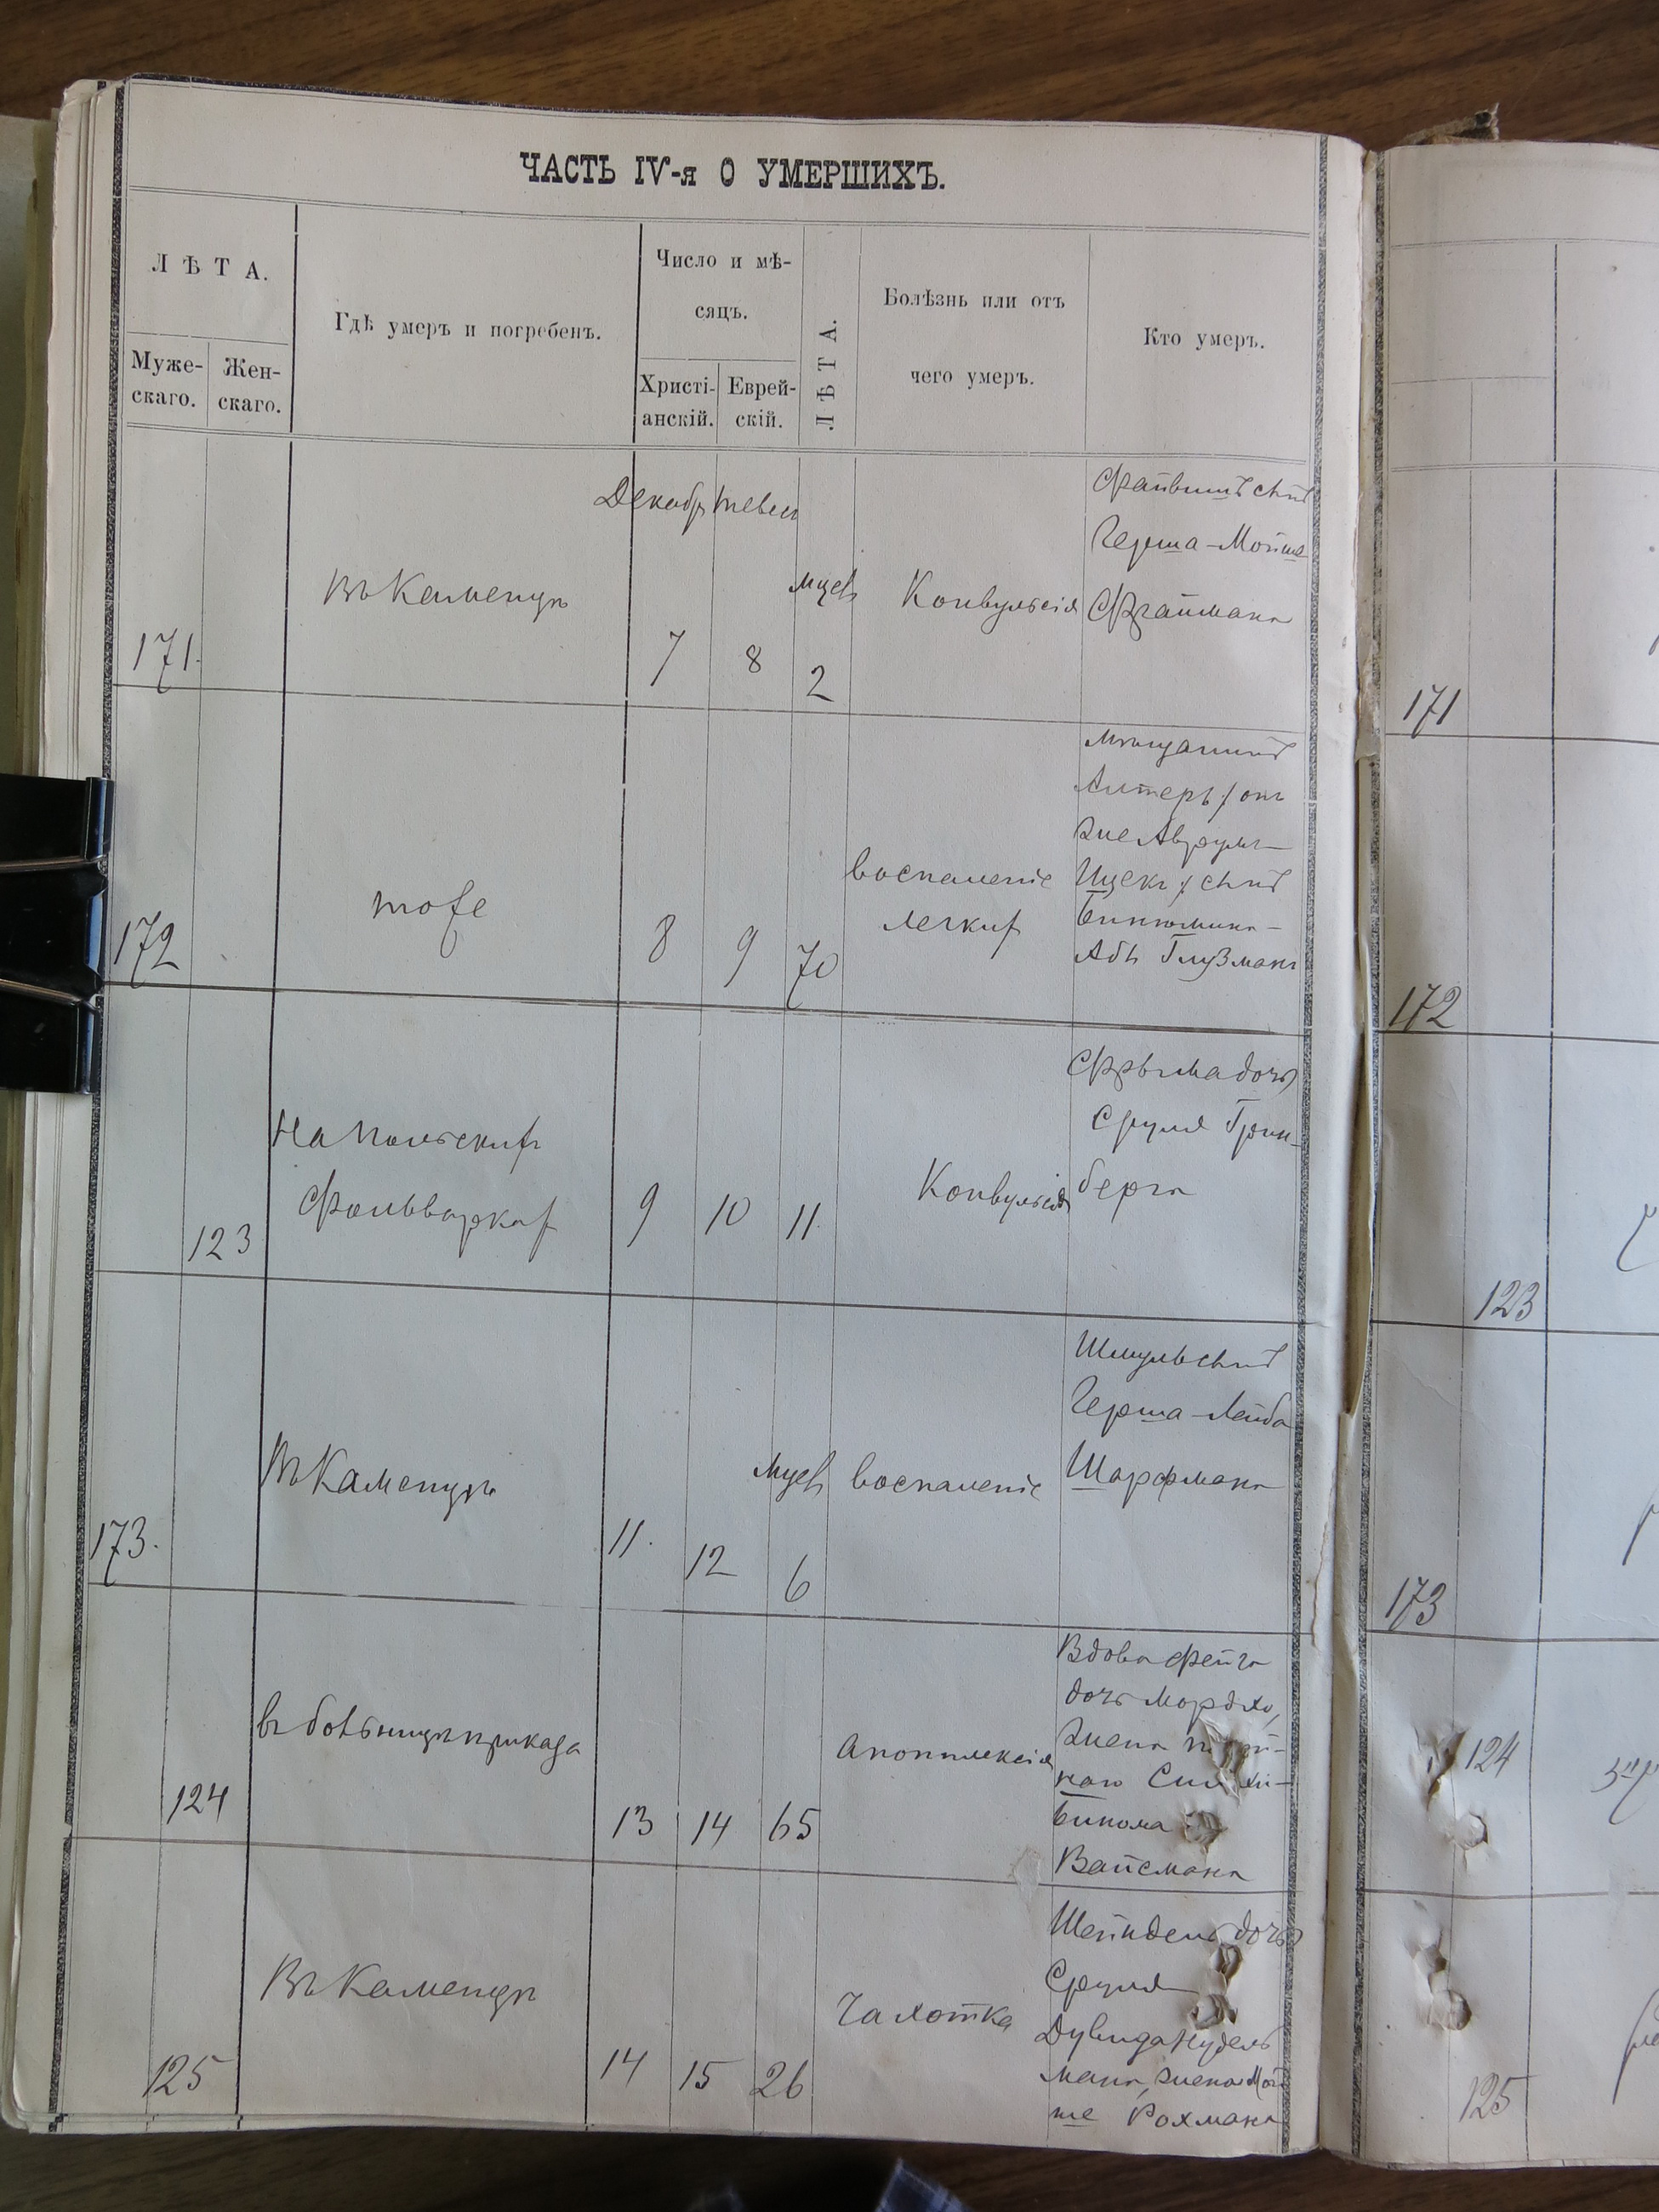 ЧАСТЬ IV-я О УМЕРШИХЪ.
ЛѢТА.
Муже-
скаго.
Жен-
скаго.
Гдѣ умеръ и погребенъ.
Число и мѣ-
сяцъ.
Христі-
анскій.
Еврей-
скій.
ЛѢТА.
Болѣзнь или отъ
чего умеръ.
Кто умеръ.
171.
Въ Каменцѣ
Декабр
7
Тевес
8
мцев
2
Конвульсія
Файвишъ сынъ
Герша-Мойше
Фраймана
172
тоже
8
9
70
воспаленіе
легких
мѣщанинъ
Алтеръ / онъ
же Аврумъ-
Ицекъ / сынъ
Биніомина-
Абы Глузманъ
123
На Польских
Фольварках
9
10
11.
Конвульсія
Фрыма дочь
Сруля Грин-
берга
173.
Въ Каменцѣ
11.
12
мцев
6
воспаленіе
Шмуль сынъ
Герша-Лейба
Шарфмана
124
въ больницѣ приказа
13
14
65
апоплексія
Вдова Фейга
дочь Мордхо,
жена
Вайсмана
125
Въ Каменцѣ
14
15
26
Чахотка
Шейндель дочь
Сруля
Дувида Нудель
мана, жена Мой
ше Рохмана
171
172
123
173
124
125